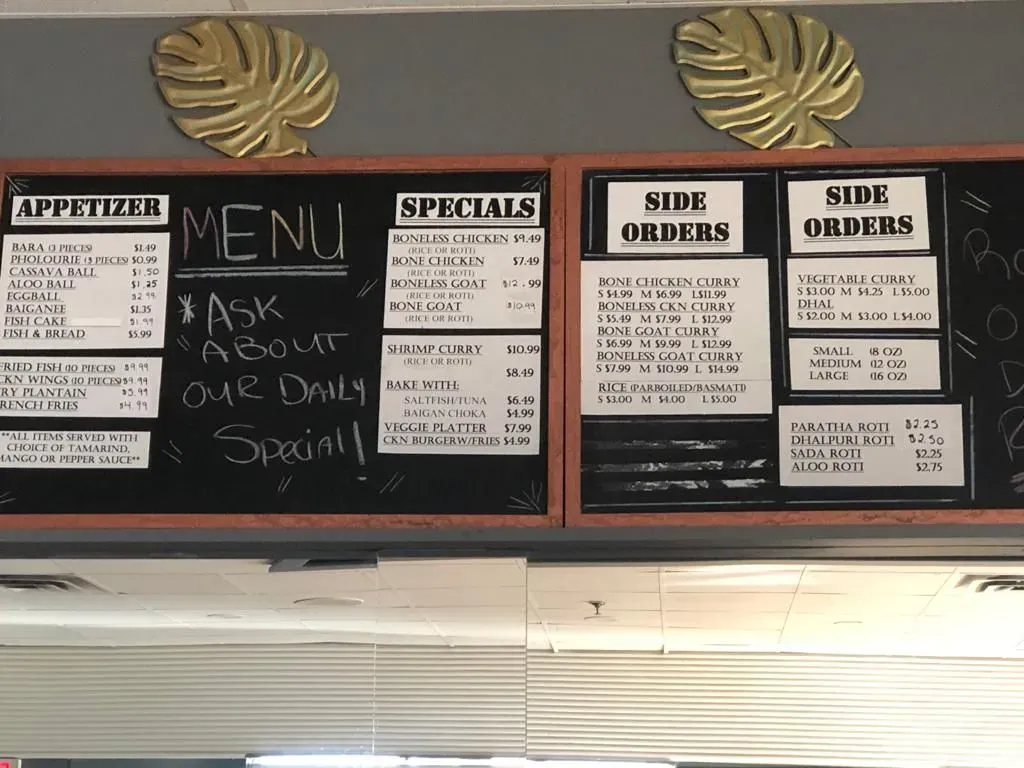 APPETIZER
BARA (3 PIECES) $1.49
PHOLOURIE (3 PIECES) $0.99
CASSAVA BALL $1.50
ALOO BALL $1.25
EGGBALL $2.99
BAIGANEE $1.35
FISH CAKE $1.99
FISH & BREAD $5.99
RIED FISH (10 PIECES) $9.99
CKN WINGS (10 PIECES) $9.99
RY PLANTAIN $5.99
RENCH FRIES $4.99
**ALL ITEMS SERVED WITH
CHOICE OF TAMARIND,
MANGO OR PEPPER SAUCE**
MENU
*ASK
ABOUT
OUR DAILY
Special!
SPECIALS
BONELESS CHICKEN $9.49
(RICE OR ROTI)
BONE CHICKEN $7.49
(RICE OR ROTI)
BONELESS GOAT $12.99
(RICE OR ROTI)
BONE GOAT $10.99
(RICE OR ROTI)
SHRIMP CURRY $10.99
(RICE OR ROTI)
$8.49
BAKE WITH:
SALTFISH/TUNA $6.49
BAIGAN CHOKA $4.99
VEGGIE PLATTER $7.99
CKN BURGERW/FRIES $4.99
SIDE
ORDERS
BONE CHICKEN CURRY
S $4.99 M $6.99 L$11.99
BONELESS CKN CURRY
S $5.49 M $7.99 L $12.99
BONE GOAT CURRY
S $6.99 M $9.99 L $12.99
BONELESS GOAT CURRY
S $7.99 M $10.99 L $14.99
RICE (PARBOILED/BASMATI)
S $3.00 M $4.00 L $5.00
SIDE
ORDERS
VEGETABLE CURRY
S $3.00 M $4.25 L$5.00
DHAL
S $2.00 M $3.00 L$4.00
SMALL (8 OZ)
MEDIUM (12 OZ)
LARGE (16 OZ)
PARATHA ROTI $2.25
DHALPURI ROTI $2.50
SADA ROTI $2.25
ALOO ROTI $2.75